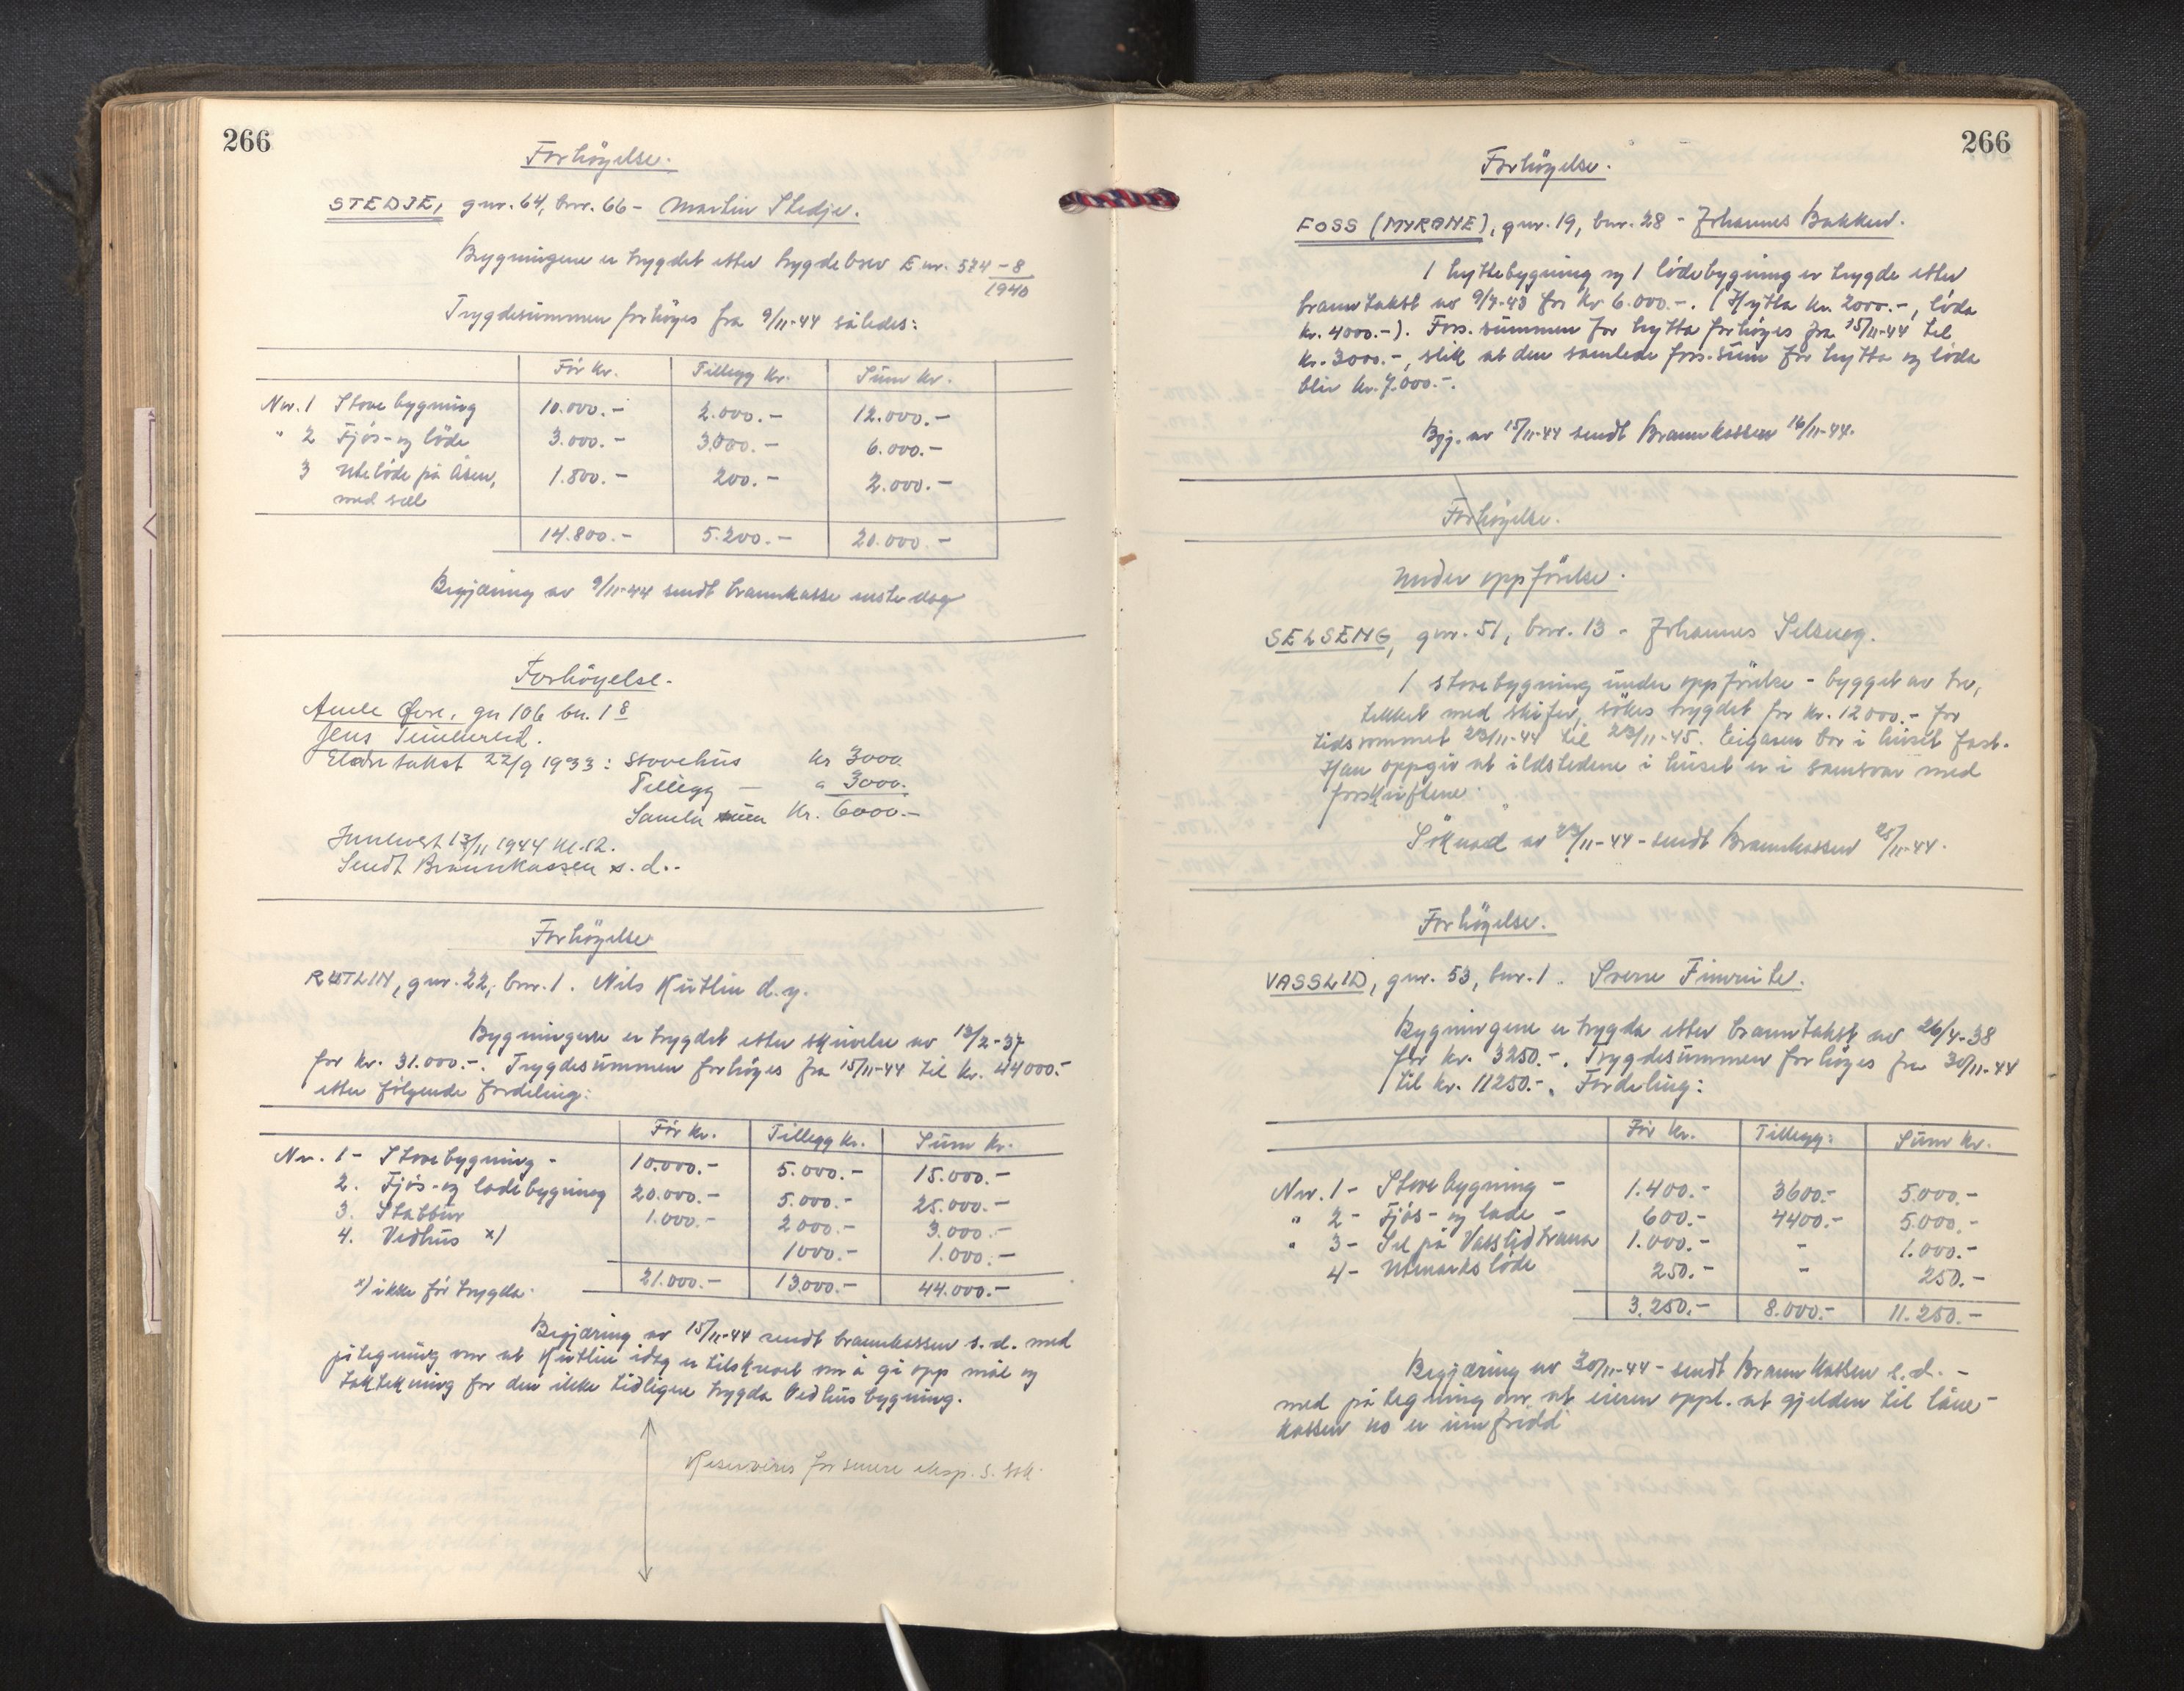 266
Forhöyelse.
STEDJE, gnr. 64, bnr. 66 - Martin Stedje.
Bygningene er trygdet etter trygdebrev E nr. 574 - 8
1940
Trygdesummen forhöyes fra 9/11-44 således:
För kr. Tillegg kr. Sum kr.
Nr. 1 Stovebygning 10.000.- 2.000.- 12.000.-
" 2 Fjös- og löde 3.000.- 3.000.- 6.000.-
3 Uteløde på Åsen, 1.800.- 200.- 2.000.-
med sæl
14.800.- 5.200.- 20.000.-
Begjæring av 9/11-44 sendt brannkasse neste dag
Forhöyelse.
Amle Øvre, gn 106 bn. 18
Jens Timberlid.
Eldre takst 22/9 1933: Stovehus kr 3000.
Tillegg — " 3000.
Samla sum Kr. 6000.-
Innlevert 13/11 1944 kl. 12.
Sendt Brannkassen s. d. -
Forhöyelse
RUTLIN, gnr. 22, bnr. 1. Nils Rutlin d.y.
Bygningene er trygdet etter skrivelse av 13/2-37
for kr. 31.000.-. Trygdesummen forhöyes fra 15/11-44 til kr. 44000.-
etter følgende fordeling:
För kr. Tillegg kr. Sum kr.
Nr. 1 - Stovebygning - 10.000.- 5.000.- 15.000.-
2. Fjös- og ladebygning 20.000.- 5.000.- 25.000.-
3. Stabbur 1.000.- 2000.- 3.000.-
4. Vedhus x) 1000.- 1.000.-
x) ikke för trygda. 21.000.- 13000.- 44.000.-
Begjæring av 15/11-44 sendt brannkassen s. d. med
påtegning om at Rutlin idag er tilskrevet om å gi opp mål og
taktekning for den ikke tidligere trygda Vedhusbygning.
Reserveres for senere eksp. S.
266
Forhöyelse.
FOSS (MYRANE), gnr. 19, bnr. 28 - Johannes Bakken.
1 hyttebygning og 1 lödebygning er trygde etter
branntakst av 9/7-43 for kr 6.000.-. (Hytta kr. 2000.-, löda
kr. 4000.-). Fors. summen for hytta forhöyes fra 15/11-44 til
kr. 3000.-, slik at den samlede fors. sum for hytta og löda
blir kr. 7.000.-.
Bgj. av 15/11-44 sendt Brannkassen 16/11-44.
Forhöyelse.
Under oppförelse.
SELSENG, gnr. 51, bnr. 13 - Johannes Selseng.
1 stovebygning under oppförelse - bygget av tre,
tekket med skifer, sökes trygdet for kr. 12000.- for
tidsrommet 23/11-44 til 23/11-45. Eigaren bor i huset fast.
Han oppgir at ildstedene i huset er i samsvar med
forskriftene.
Söknad av 23/11-44 - sendt Brannkassen 25/11-44.
Forhöyelse.
VASSLID, gnr. 53, bnr. 1. Sverre Fimreite.
Bygningene er trygda etter branntakst av 26/4-38
for kr. 3250.-. Trygdesummen forhöyes fra 30/11-44
til kr. 11250.-. Fordeling:
För kr. Tillegg: Sum kr.
Nr. 1 - Stovebygning - 1.400.- 3600.- 5.000.-
" 2 - Fjös- og lade - 600.- 4400.- 5.000.-
" 3 - Sel på Vasslidtrana 1.000.- - 1.000.-
4 - Utmarkslöde 250.- - 250.-
3.250.- 8.000.- 11.250.-
Begjæring av 30/11-44 - sendt Brannkassen s. d. -
med påtegning om at eieren oppl. at gjelden til låne-
kassen no er innfridd